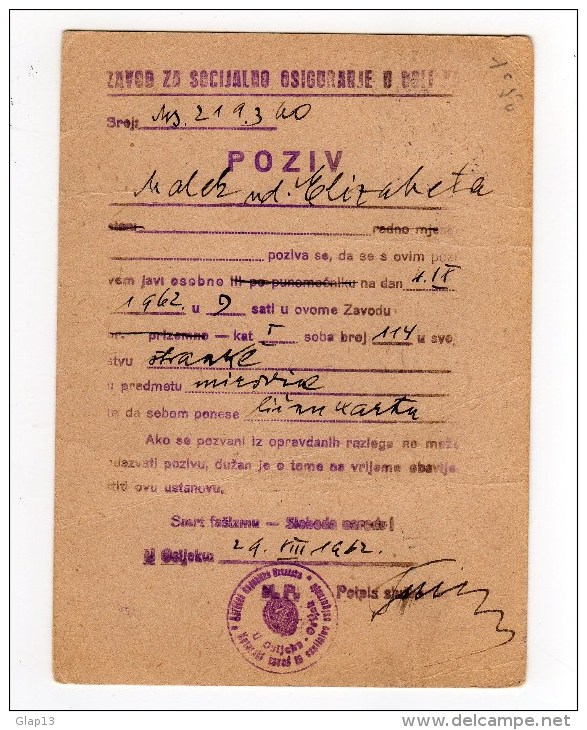 ZAVOD ZA SOCIJALNO OSIGURANJE U
Broj: 219.340
POZIV
ud. Elizabeta
radno mje
poziva se, da se s ovim poz
vom javi osobno ili po punomoćniku na dan IX
1962 u 9 sati u ovome Zavodu
prizemno — kat I soba broj 114 u svo
stvu stranke
u predmetu mirovine
e da sebom ponese ličnu kartu
Ako se pozvani iz opravdanih razloga ne može
odazvati pozivu, dužan je o tome na vrijeme obavije
stiti ovu ustanovu.
Smrt fašizmu — Sloboda narodu!
U Osijeku 29. VIII 1962.
M. P. Potpis
U Osijeku
Glap13
www.delcampe.net